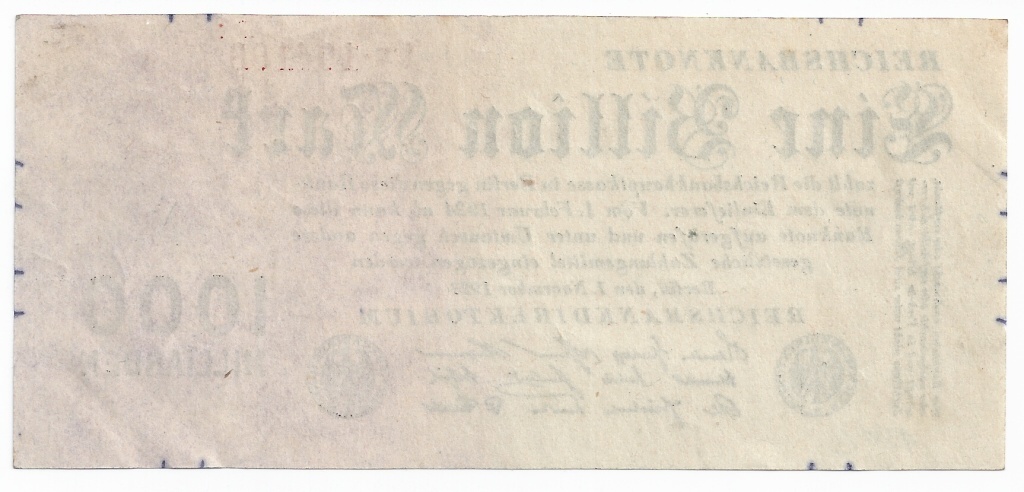 REICHSBANKNOTE
Eine Billion Mark
zahlt die Reichsbankhauptkasse in Berlin gegen diese Bank-
note dem Einlieferer. Vom 1. Februar 1924 ab kann diese
Banknote aufgerufen und unter Umtausch gegen andere
gesetzliche Zahlungsmittel eingezogen werden
Berlin, den 1. November 1923
REICHSBANKDIREKTORIUM
1000
MILLIARDEN